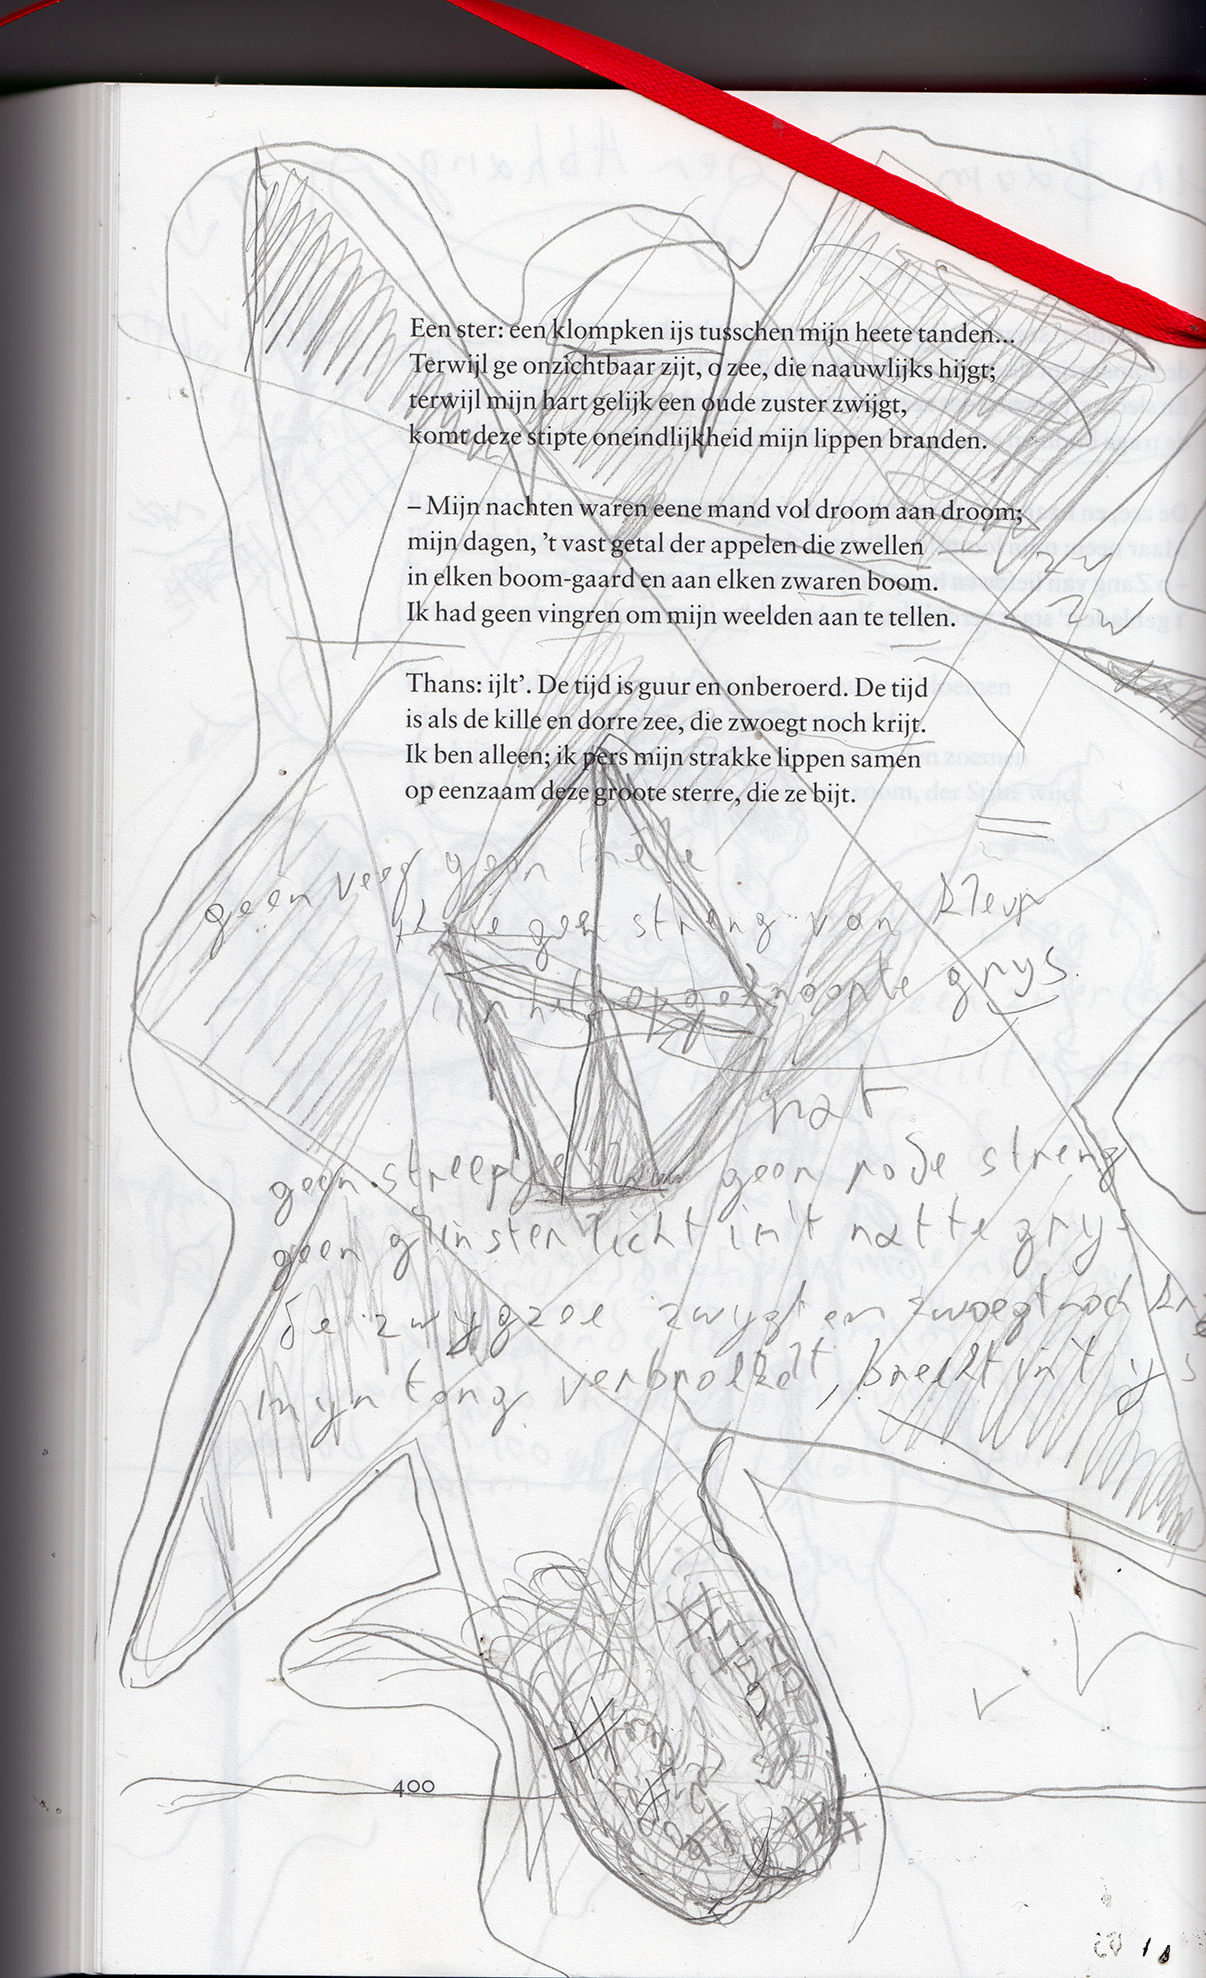 Een ster: een klompken ijs tusschen mijn heete tanden...
Terwijl ge onzichtbaar zijt, o zee, die naauwlijks hijgt;
terwijl mijn hart gelijk een oude zuster zwijgt,
komt deze stipte oneindlijkheid mijn lippen branden.
– Mijn nachten waren eene mand vol droom aan droom;
mijn dagen, ’t vast getal der appelen die zwellen
in elken boom-gaard en aan elken zwaren boom.
Ik had geen vingren om mijn weelden aan te tellen.
zw
zw
Thans: ijlt’. De tijd is guur en onberoerd. De tijd
is als de kille en dorre zee, die zwoegt noch krijt.
Ik ben alleen; ik pers mijn strakke lippen samen
op eenzaam deze groote sterre, die ze bijt.
geen veeg geen
streng van kleur
in het opgeknoopte grys.
nat
geen streepje geen rode streng
geen glinster licht in't natte grys
de zwygzee zwygt en zwoegt noch
myn tong verbrokkelt, breekt in't ys
400